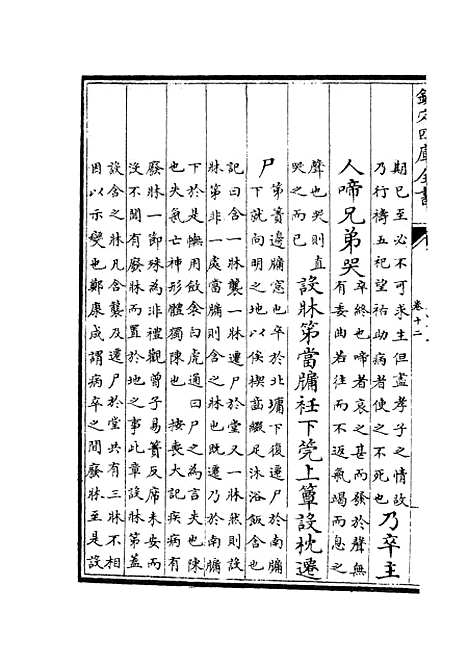 欽定四庫全書
卷十二
期已至必不可求生但盡孝子之情故
乃行禱五祀望祐助病者使之不死也
乃卒主
人啼兄弟哭
卒終也啼者哀之甚而發於聲無
有委曲若往而不返氣竭而息之
聲也哭則直
哭之而已
設牀第當牖衽下莞上簟設枕遷
尸
第簀邊牖窓也卒於北墉下復遷尸於南牖
下就向明之地以俟楔齒綴足沐浴飯含也
記曰含一牀襲一牀遷尸於堂又一牀然則設
牀第非一處當牖則含之牀也既遷乃於南牖
下於是幠用斂衾白虎通曰尸之為言失也陳
也失氣亡神形體獨陳也 按喪大記疾病有
廢牀一節殊為非禮觀曾子易簀反席未安而
沒不聞有廢牀而置於地之事此章設牀第蓋
設含之牀凡含襲及遷尸於堂共有三牀不相
因以示變也鄭康成謂病卒之間廢牀至是設